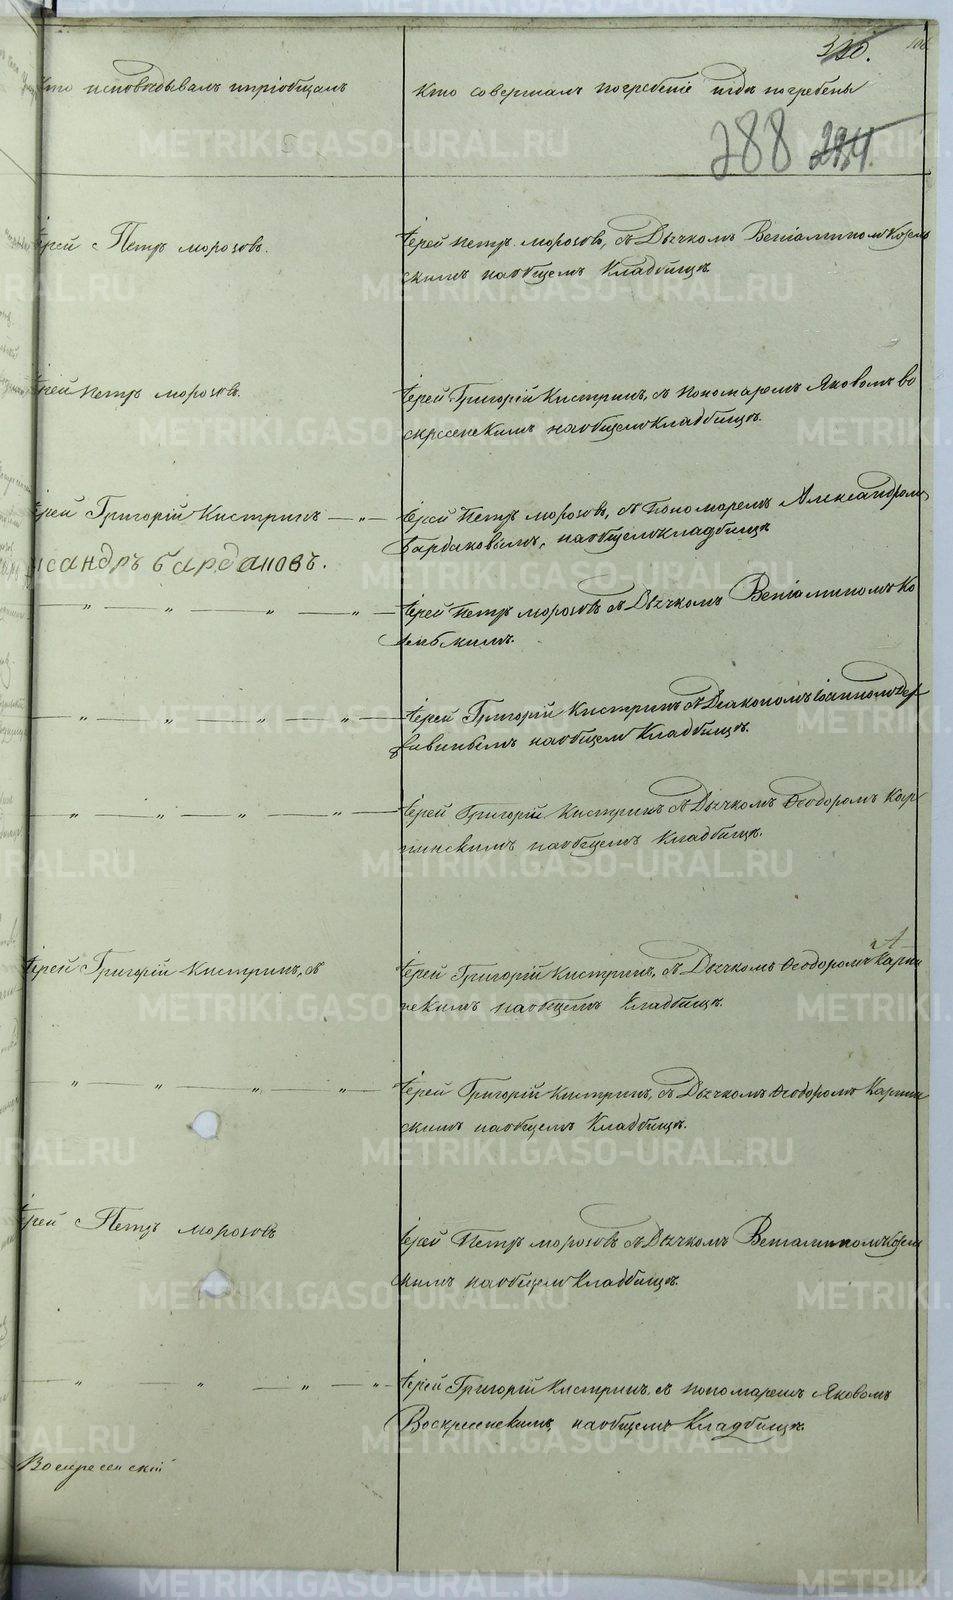 320.
Кто исповѣдывалъ и пріобщалъ
Кто совершалъ погребеніе и гдѣ погребены
288 294.
Іерей Петръ Морозовъ.
Іерей Петръ Морозовъ, съ Дьячкомъ Веніаминомъ Кozель
скимъ на общемъ Кладбищѣ.
Іерей Петръ Морозовъ.
Іерей Григорій Кистринъ, съ Пономаремъ Яковомъ Во
скресенскимъ на общемъ кладбищѣ.
Іерей Григорій Кистринъ — „ —
Іерей Петръ Морозовъ, съ Пономаремъ Александромъ
ксандръ Бардаковъ.
Бардаковымъ, на общемъ кладбищѣ
— „ — „ — „ — „ —
Іерей Петръ Морозовъ съ Дьячкомъ Веніаминомъ Ко
зельскимъ.
— „ — „ — „ — „ —
Іерей Григорій Кистринъ съ Діакономъ Іоанномъ Дер
жавинымъ на общемъ Кладбищѣ.
— „ — „ — „ — „ —
Іерей Григорій Кистринъ съ Дьячкомъ Ѳеодоромъ Кар
пинскимъ на общемъ Кладбищѣ.
Іерей Григорій Кистринъ, съ
Іерей Григорій Кистринъ, съ Дьячкомъ Ѳеодоромъ Карпи
нскимъ на общемъ Кладбищѣ.
— „ — „ — „ — „ —
Іерей Григорій Кистринъ, съ Дьячкомъ Ѳеодоромъ Карпин
скимъ на общемъ Кладбищѣ.
Іерей Петръ Морозовъ
Іерей Петръ Морозовъ съ Дьячкомъ Веніаминомъ Козель
скимъ на общемъ Кладбищѣ.
— „ — „ — „ — „ —
Іерей Григорій Кистринъ, съ Пономаремъ Яковомъ
Воскресенскимъ, на общемъ Кладбищѣ.
Воскресенскій
METRIKI.GASO-URAL.RU